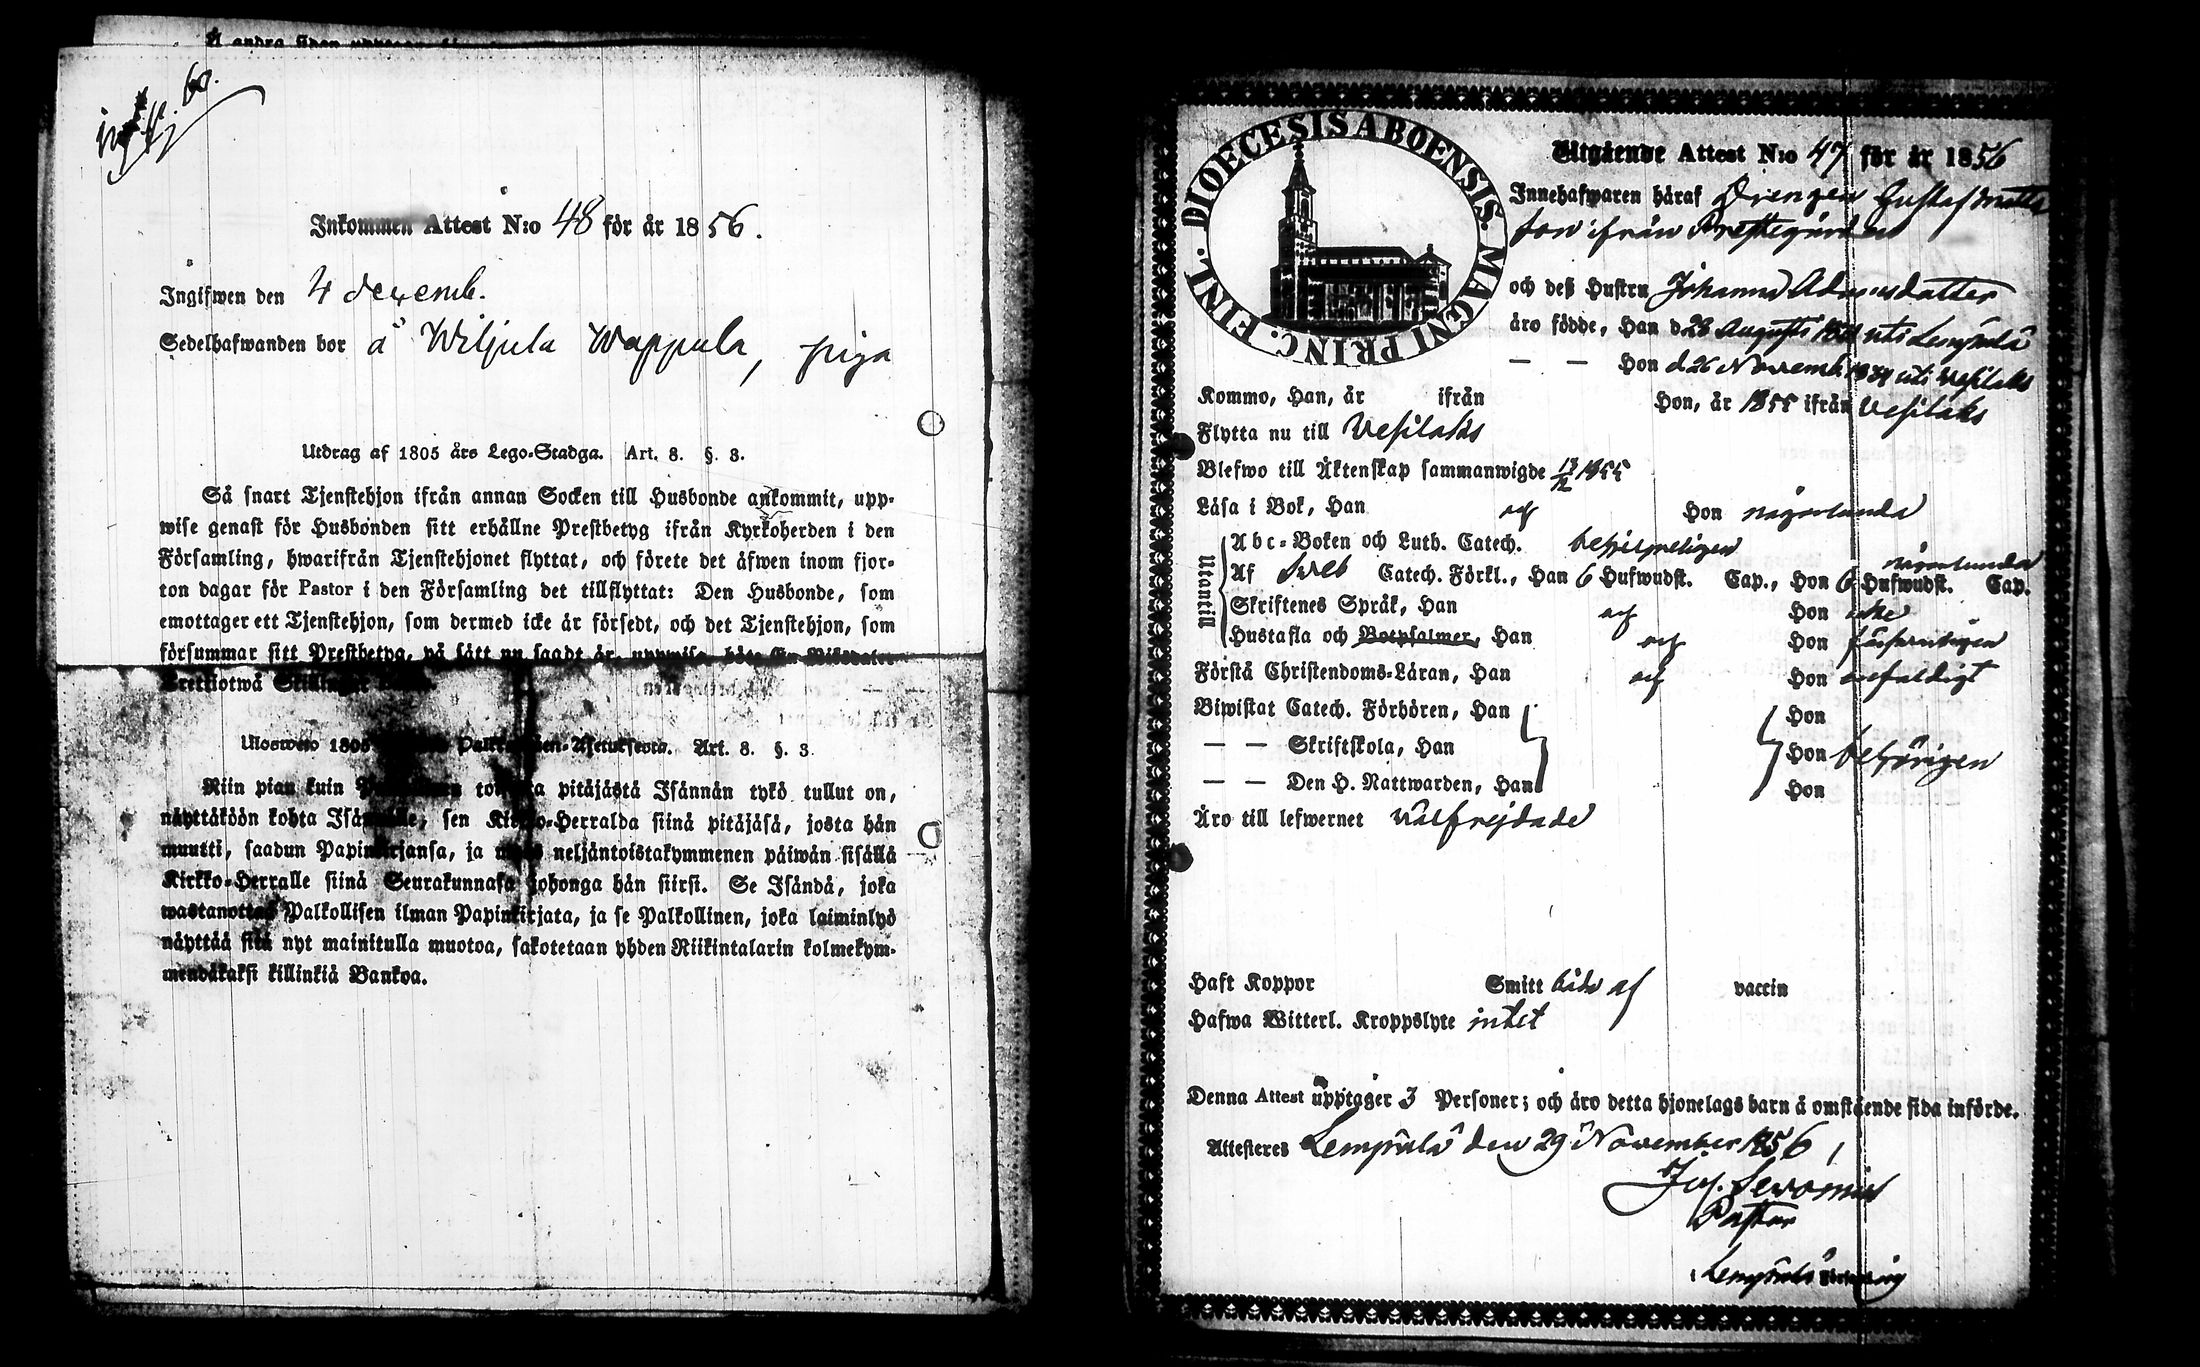 Å andra sidan
Inkommen Attest N:o 48 för år 1856.
Ingifwen den 4 decemb.
Sedelhafwanden bor å Wiljula Wappula, piga
Utdrag af 1805 års Lego-Stadga. Art. 8. §. 3.
Så snart Tjenstehjon ifrån annan Socken till Husbonde ankommit, upp-
wise genast för Husbonden sitt erhållne Prestbetyg ifrån Kyrkoherden i den
Församling, hwarifrån Tjenstehjonet flyttat, och förete det äfwen inom fjor-
ton dagar för Pastor i den Församling det tillflyttat: Den Husbonde, som
emottager ett Tjenstehjon, som dermed icke är försedt, och det Tjenstehjon, som
försummar sitt Prestbetyg, på sätt nu sagdt är, uppwisa, böte En Riksdaler
Trettiotwå Skillingar
Ulosweto 1805 Palkollisten-Asetuksesta. Art. 8. §. 3.
Niin pian kuin toisesta pitäjästä Isännän tykö tullut on,
näyttäköön kohta Isännälle, sen Kirkko-Herralda siinä pitäjäsä, josta hän
muutti, saadun Papinkirjansa, ja myös neljäntoistakymmenen päiwän sisällä
Kirkko-Herralle siinä Seurakunnasa johonga hän siirsi. Se Isändä, joka
wastanottaa Palkollisen ilman Papinkirjata, ja se Palkollinen, joka laiminlyö
näyttää sitä nyt mainitulla muotoa, sakotetaan yhden Riikintalarin kolmekym-
mendäkaksi killinkiä Bankoa.
DIOECESIS ABOENSIS. MAGNI PRINC. FINL.
Utgående Attest N:o 47 för år 1856
Innehafwaren häraf Drengen Gustaf Matts
son ifrån Prestegården
och deß Hustru Johanna Adamsdatter
äro födde, Han d. 28 Augusti uti Lempälä
— — Hon d. 26 Novemb. uti Vesilaks
Kommo, Han, år ifrån Hon, år 1855 ifrån Vesilaks
Flytta nu till Vesilaks
Blefwo till Äktenskap sammanwigde 1855
Läsa i Bok, Han Hon någorlunda
Utantill
Abc-Boken och Luth. Catech. någorlunda
Af Sveb Catech. Förkl., Han 6 Hufwudst. Cap., Hon 6 Hufwudst. Cap.
Skriftenes Språk, Han Hon icke
Hustafla och Botpsalmer, Han Hon
Förstå Christendoms-Läran, Han Hon enfaldigt
Biwistat Catech. Förhören, Han Hon
— — Skriftskola, Han Hon behörigen
— — Den H. Nattwarden, Han Hon
Äro till lefwernet välfrejdade
Haft Koppor Smitt både af vaccin
Hafwa Witterl. Kroppslyte intet
Denna Attest upptager 3 Personer; och äro detta hjonelags barn å omstående sida införde.
Attesteres Lempälä den 29 November 1856
Pastor
Lempälä Församling